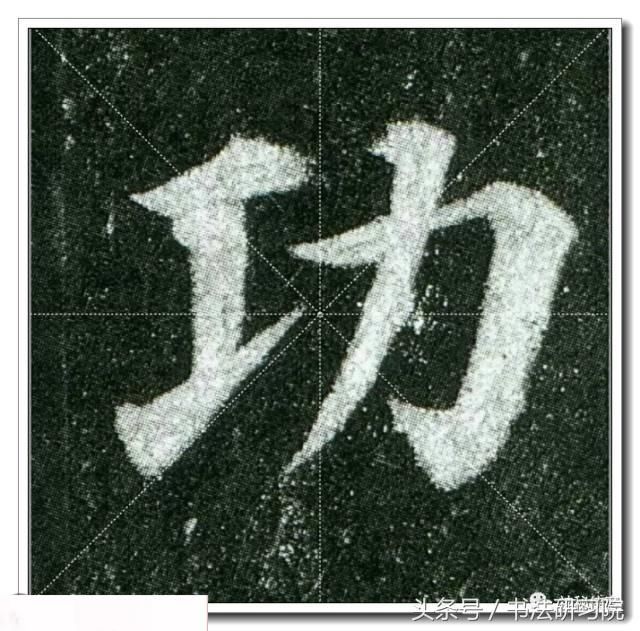 功
头条号 / 书法研习院